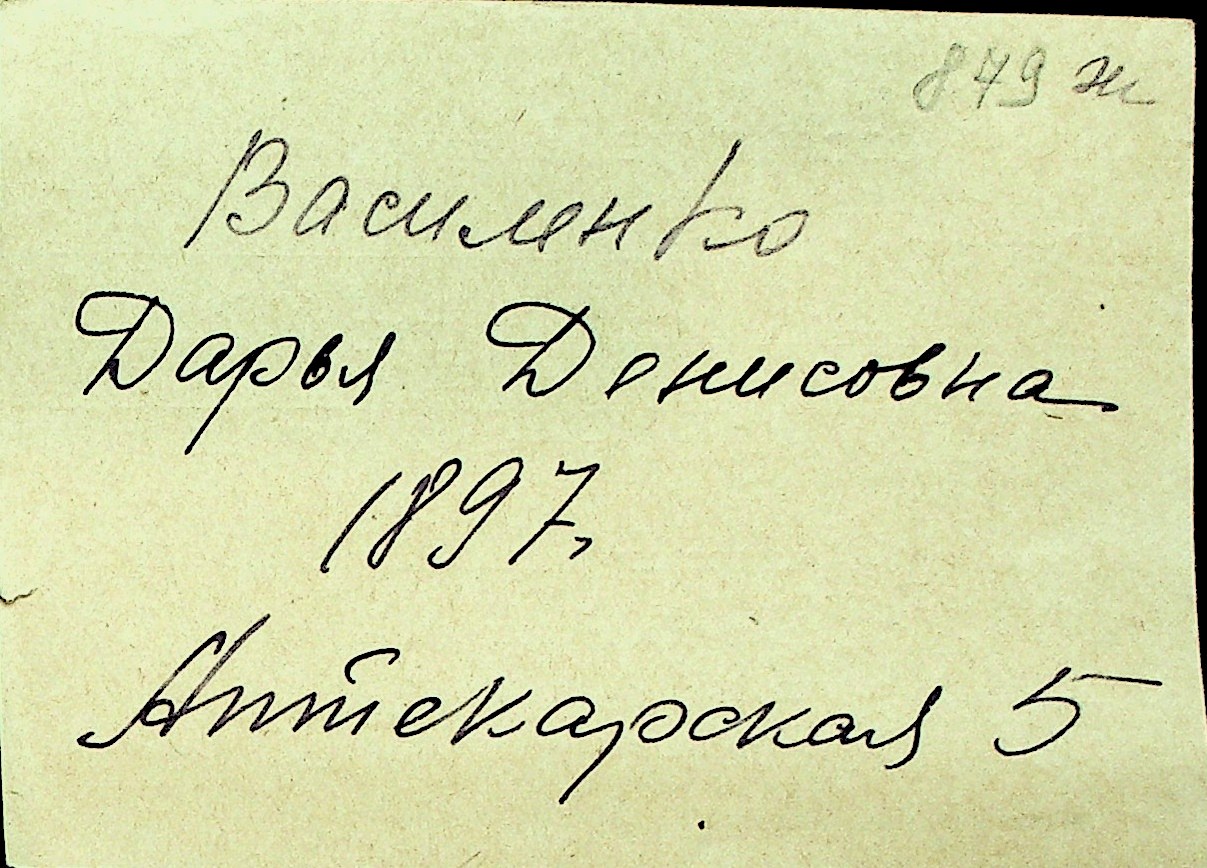 879 ж
Василенко
Дарья Денисовна
1897,
Аптекарская 5